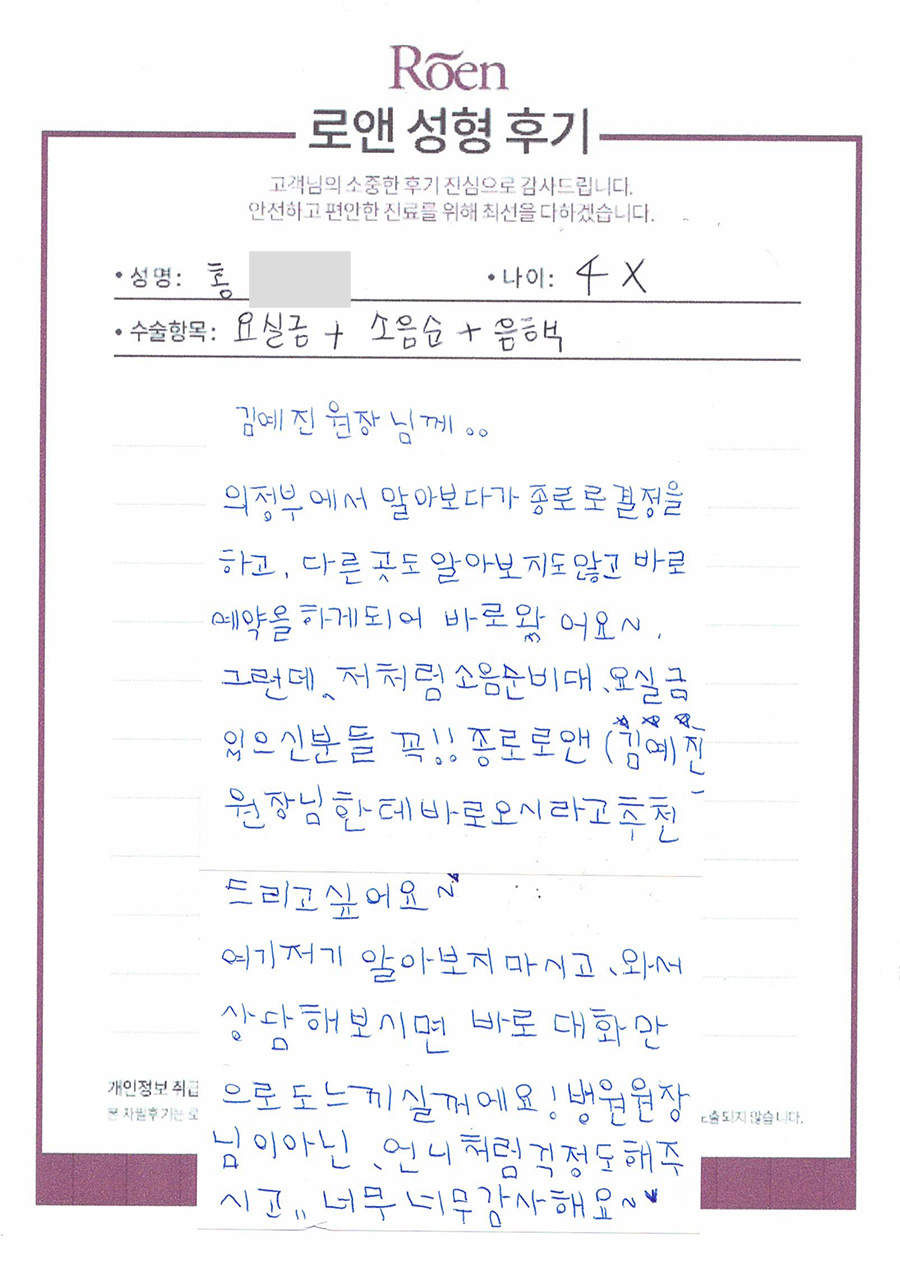 Rōen
로앤 성형 후기
고객님의 소중한 후기 진심으로 감사드립니다.
안전하고 편안한 진료를 위해 최선을 다하겠습니다.
• 성명: 홍
• 나이: 4X
• 수술항목: 요실금 + 소음순 + 음핵
김예진 원장님께..
의정부에서 알아보다가 종로로 결정을
하고, 다른 곳도 알아보지도않고 바로
예약을하게되어 바로왔어요~.
그런데, 저처럼 소음순비대, 요실금
있으신분들 꼭!! 종로로앤 (김예진
원장님한테바로오시라고추천
드리고싶어요~
여기저기 알아보지마시고, 와서
상담해보시면 바로 대화만
으로도느끼실꺼에요! 병원원장
님이아닌, 언니처럼걱정도해주
시고,, 너무너무감사해요~♥
개인정보 취급
본 자필후기는 로
출되지 않습니다.